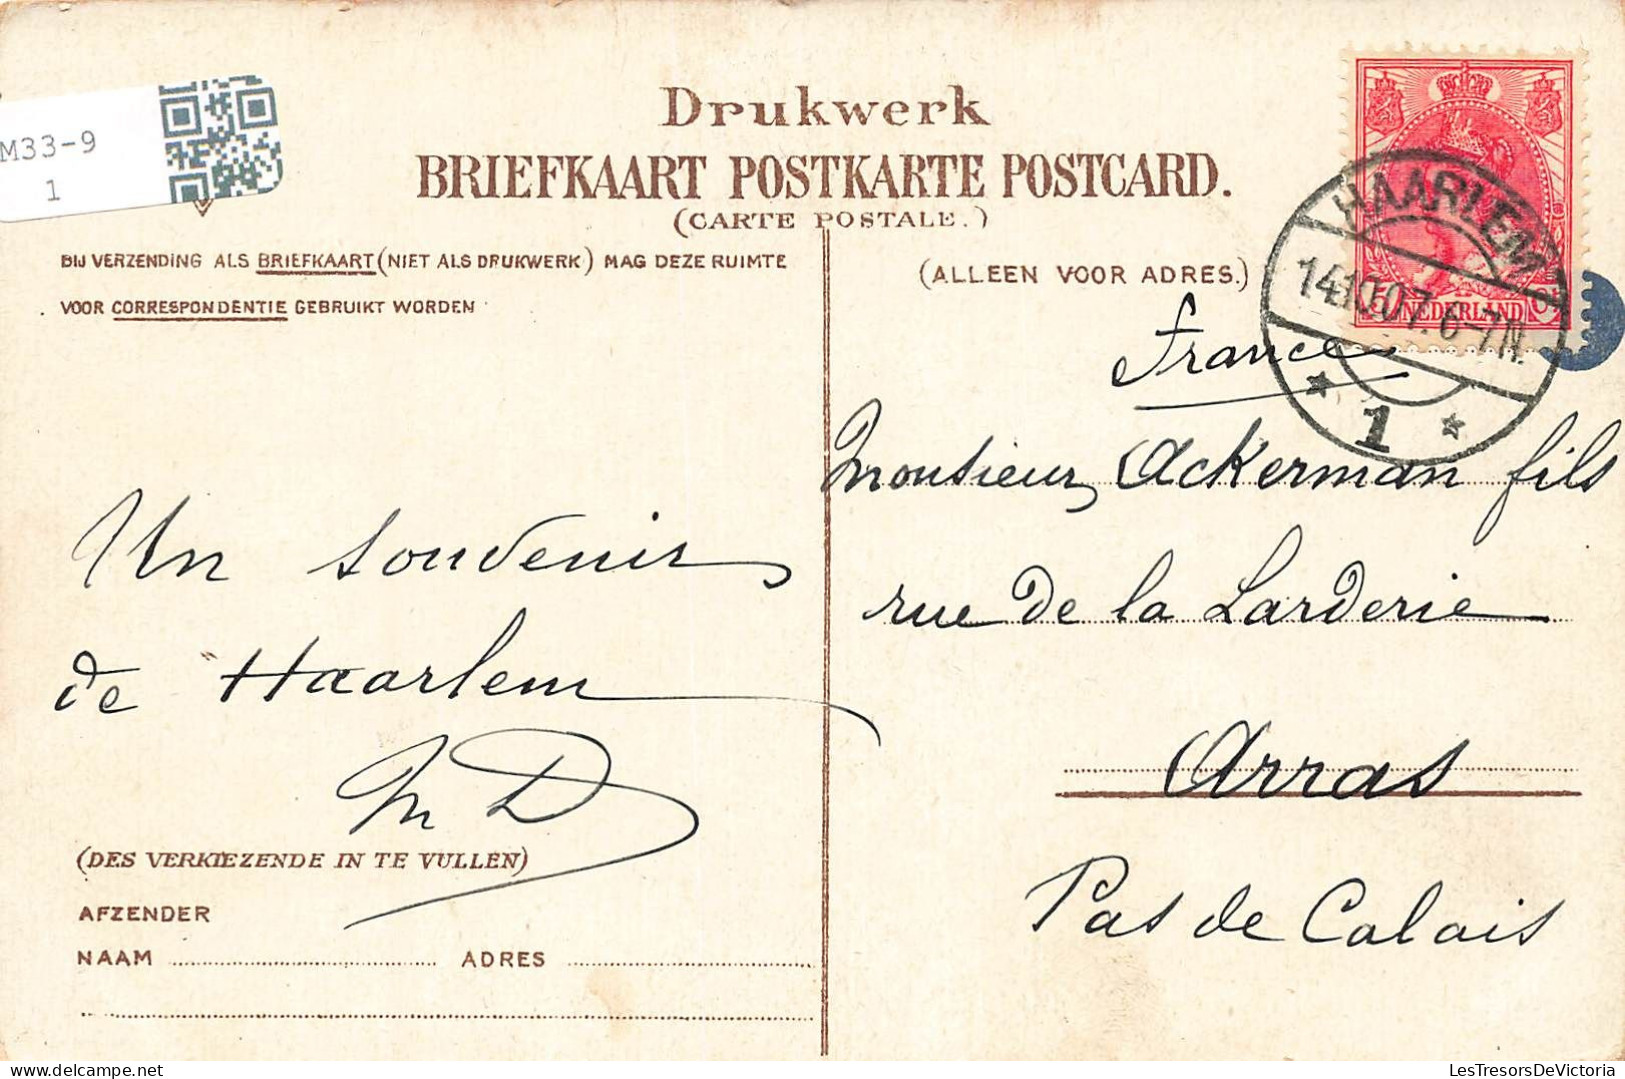 M33-9
1
Drukwerk
BRIEFKAART POSTKARTE POSTCARD.
(CARTE POSTALE.)
BIJ VERZENDING ALS BRIEFKAART (NIET ALS DRUKWERK) MAG DEZE RUIMTE
VOOR CORRESPONDENTIE GEBRUIKT WORDEN
(ALLEEN VOOR ADRES.)
NEDERLAND
HAARLEM
14.10.07. 6-7N.
1
France
Monsieur Ackerman fils
rue de la Larderie
Arras
Pas de Calais
Un souvenir
de Haarlem
M D
(DES VERKIEZENDE IN TE VULLEN)
AFZENDER
NAAM ADRES
LesTresorsDeVictoria